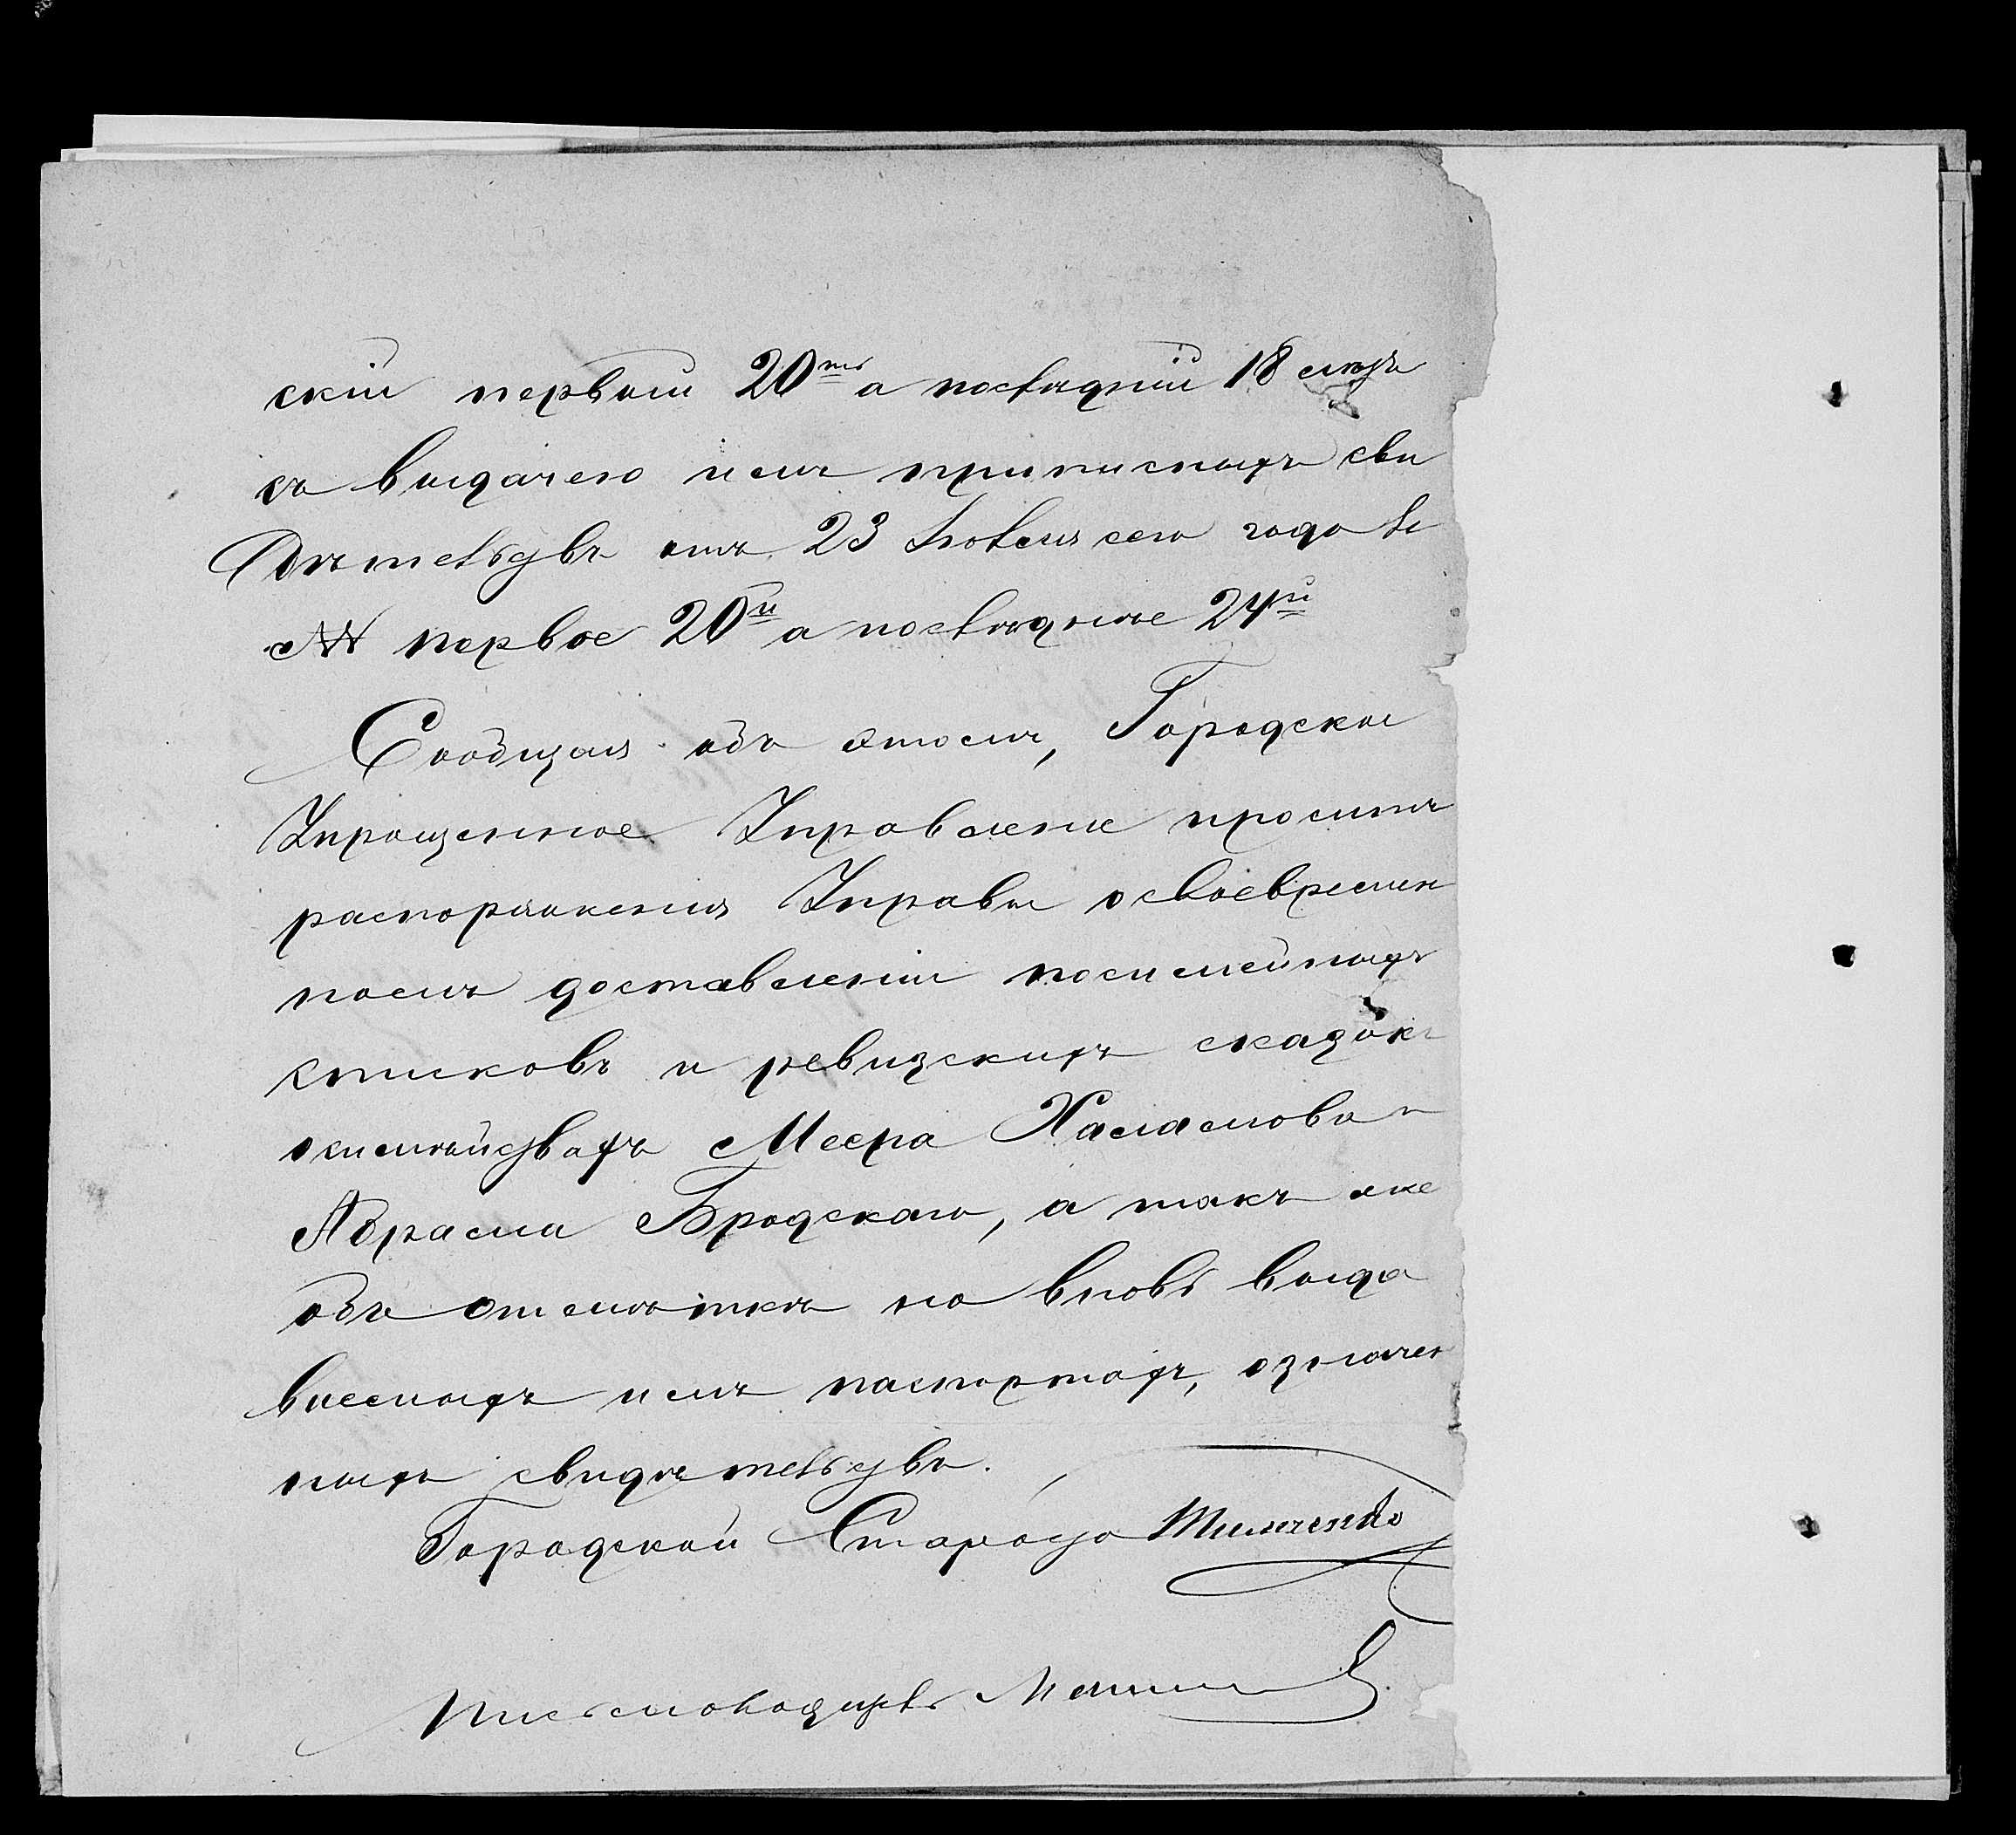 скій первый 20ть а послѣдній 18 лѣтъ
съ выдачею имъ приписныхъ сви
дѣтельствъ отъ 23 Іюля сего года за
№№ первое 20й а послѣднее 24й
Сообщая объ этомъ, Городское
Упрощенное Управленіе проситъ
распоряженія Управы о своевремен
номъ доставленіи посимейныхъ
списковъ и ревизскихъ сказокъ
о симѣйствахъ Меера Халамова и
Абрама Бродскаго, а такъ же
объ отмѣткѣ на вновь выда
ваемыхъ имъ паспортахъ, означен
ныхъ свидѣтельствъ.
Городской Староста Тимченко
Письмоводитель